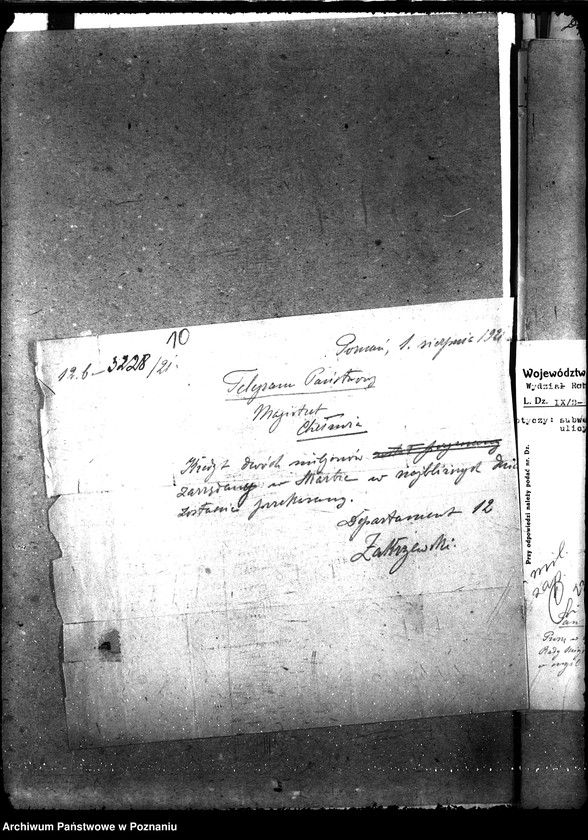 10
12.b – 3228/21.
Poznań, 1. sierpnia 192
Telegram Państwowy
Magistrat
Chełmża
Kredyt dwóch miljonów
zarządany w Markce w najbliższych dni
zostanie przekazany.
Departament 12
Zakrzewski.
Województw
Wydział Rob
L. Dz. IX/2-
otyczy: subwe
ulicy
Przy odpowiedzi należy podać nr. Dz.
Archiwum Państwowe w Poznaniu